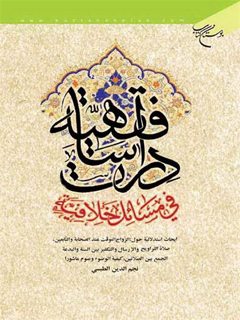 دراسات فقهية
في مسائل خلافية
ابحاث استدلالية حول: الزواج الموقت عند الصحابة والتابعين،
صلاة التراويح والإرسال والتكفير بين السنة والبدعة
الجمع بين الصلاتين، كيفية الوضوء وصوم عاشورا
نجم الدين الطبسي